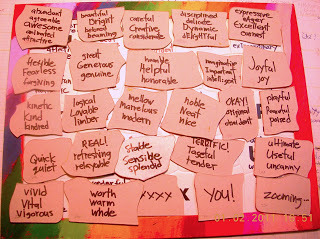 abundant
agreeable
awesome
animated
attractive
beautiful
bright
beloved
beaming
careful
creative
considerate
disciplined
delicate
Dynamic
delightful
expressive
eager
Excellent
earnest
flexible
Fearless
forgiving
great
Generous
genuine
humble
Helpful
honorable
imaginative
Important
intelligent
Joyful
joy
kinetic
Kind
kindred
logical
Lovable
limber
mellow
Marvelous
modern
noble
Neat
nice
OKAY!
original
obedient
playful
Peaceful
poised
Quick
quiet
REAL!
refreshing
relayable
Stable
Sensible
splendid
TERRIFIC!
Tasteful
tender
ultimate
Useful
uncanny
vivid
Vital
Vigorous
worth
warm
whole
xxxx
YOU!
zooming